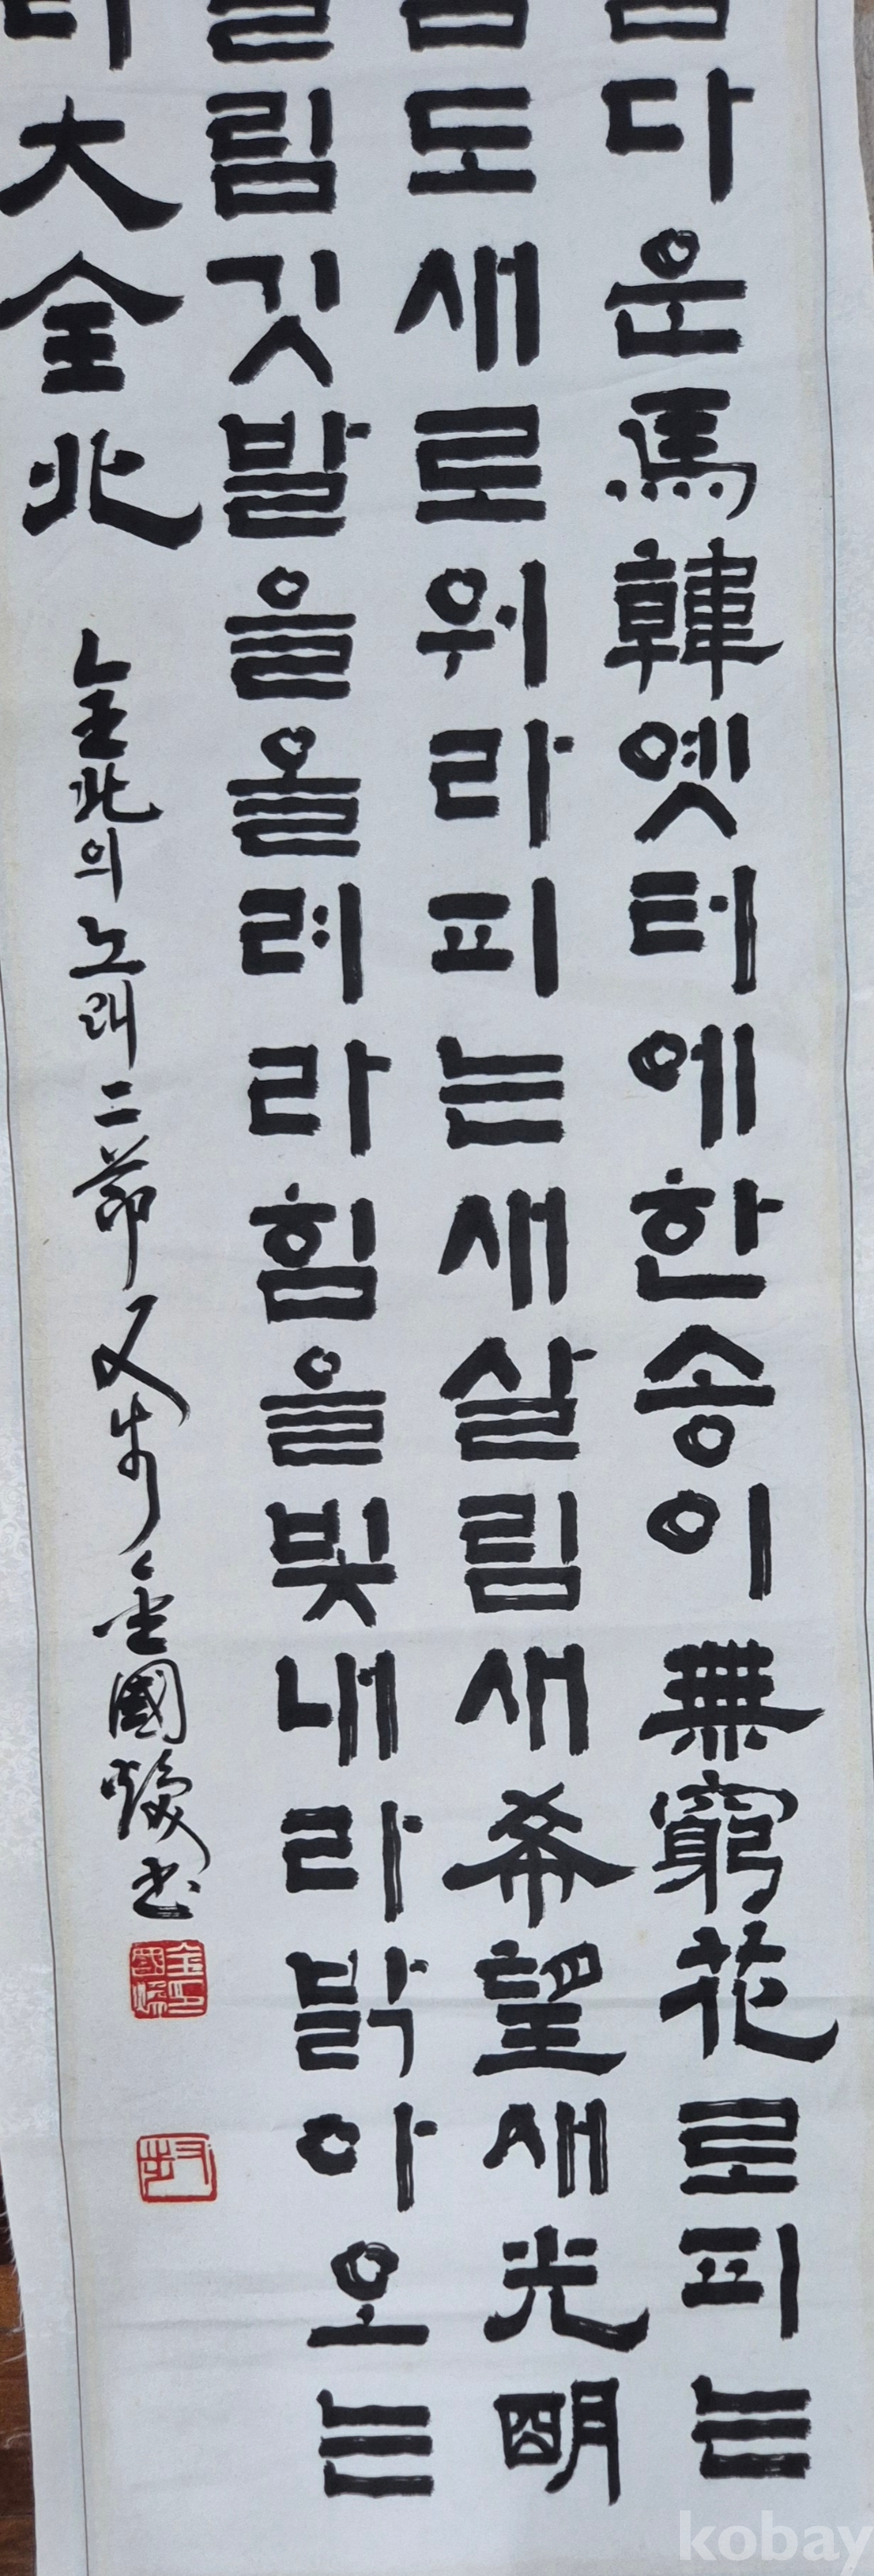 다운馬韓옛터에한송이無窮花로피는
도새로워라피는새살림새希望새光明
림깃발을올려라힘을빛내라밝아오는
大全北
全北의노래二節 又步 金國 書
kobay